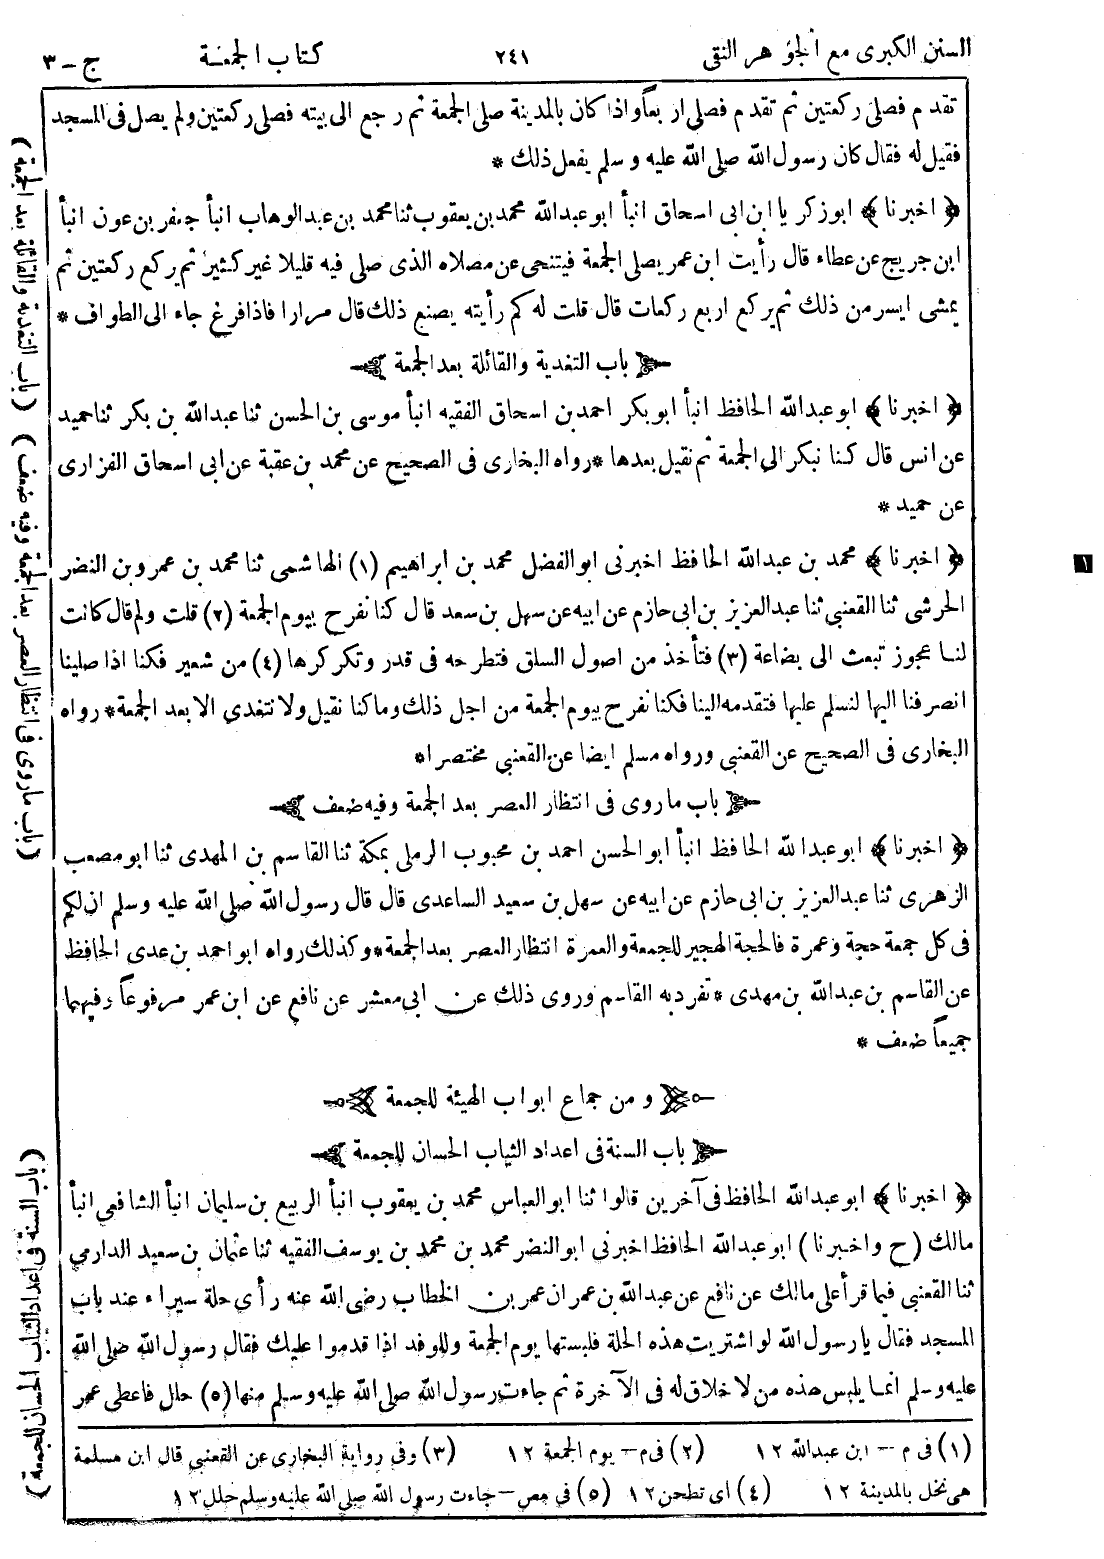 السنن الكبرى مع الجوهر النقى ٢٤١ كتاب الجمعة ج - ٣
تقدم فصلى ركعتين ثم تقدم فصلى اربعاً واذا كان بالمدينة صلى الجمعة ثم رجع الى بيته فصلى ركعتين ولم يصل فى المسجد
فقيل له فقال كان رسول الله صلى الله عليه وسلم يفعل ذلك *
﴿ اخبرنا ﴾ ابو زكريا ابن ابى اسحاق انبأ ابو عبدالله محمد بن يعقوب ثنا محمد بن عبدالوهاب انبأ جعفر بن عون انبأ
ابن جريج عن عطاء قال رأيت ابن عمر يصلى الجمعة فيتنحى عن مصلاه الذى صلى فيه قليلا غير كثير ثم يركع ركعتين ثم
يمشى ايسر من ذلك ثم يركع اربع ركعات قال قلت له كم رأيته يصنع ذلك قال مرارا فاذا فرغ جاء الى الطواف *
باب التغدية والقائلة بعد الجمعة
﴿ اخبرنا ﴾ ابو عبدالله الحافظ انبأ ابو بكر احمد بن اسحاق الفقيه انبأ موسى بن الحسن ثنا عبدالله بن بكر ثنا حميد
عن انس قال كنا نبكر الى الجمعة ثم نقيل بعدها * رواه البخارى فى الصحيح عن محمد بن عقبة عن ابى اسحاق الفزارى
عن حميد *
﴿ اخبرنا ﴾ محمد بن عبدالله الحافظ اخبرنى ابو الفضل محمد بن ابراهيم (١) الهاشمى ثنا محمد بن عمرو بن النضر
الحرشى ثنا القعنبى ثنا عبدالعزيز بن ابى حازم عن ابيه عن سهل بن سعد قال كنا نفرح بيوم الجمعة (٢) قلت ولم قال كانت
لنا عجوز تبعث الى بضاعة (٣) فتأخذ من اصول السلق فتطرحه فى قدر وتكركرها (٤) من شعير فكنا اذا صلينا
انصرفنا اليها لنسلم عليها فتقدمه الينا فكنا نفرح بيوم الجمعة من اجل ذلك وما كنا نقيل ولا نتغدى الا بعد الجمعة * رواه
البخارى فى الصحيح عن القعنبى ورواه مسلم ايضا عن القعنبى مختصرا *
باب ما روى فى انتظار العصر بعد الجمعة وفيه ضعف
﴿ اخبرنا ﴾ ابو عبدالله الحافظ انبأ ابو الحسن احمد بن محبوب الرملى بمكة ثنا القاسم بن المهدى ثنا ابو مصعب
الزهرى ثنا عبدالعزيز بن ابى حازم عن ابيه عن سهل بن سعيد الساعدى قال قال رسول الله صلى الله عليه وسلم ان لكم
فى كل جمعة حجة وعمرة فالحجة الهجير للجمعة والعمرة انتظار العصر بعد الجمعة * وكذلك رواه ابو احمد بن عدى الحافظ
عن القاسم بن عبدالله بن مهدى * تفرد به القاسم وروى ذلك عن ابى معشر عن نافع عن ابن عمر مرفوعاً وفيهما
جميعاً ضعف *
ومن جماع ابواب الهيئة للجمعة
باب السنة فى اعداد الثياب الحسان للجمعة
﴿ اخبرنا ﴾ ابو عبدالله الحافظ فى آخرين قالوا ثنا ابو العباس محمد بن يعقوب انبأ الربيع بن سليمان انبأ الشافعى انبأ
مالك (ح واخبرنا) ابو عبدالله الحافظ اخبرنى ابو النضر محمد بن محمد بن يوسف الفقيه ثنا عثمان بن سعيد الدارمى
ثنا القعنبى فيما قرأ على مالك عن نافع عن عبدالله بن عمر ان عمر بن الخطاب رضى الله عنه رأى حلة سيراء عند باب
المسجد فقال يا رسول الله لو اشتريت هذه الحلة فلبستها يوم الجمعة وللوفد اذا قدموا عليك فقال رسول الله صلى الله
عليه وسلم انما يلبس هذه من لا خلاق له فى الآخرة ثم جاءت رسول الله صلى الله عليه وسلم منها (٥) حلل فاعطى عمر
(١) فى م - ابن عبدالله ١٢ (٢) فى م - يوم الجمعة ١٢ (٣) وفى رواية البخارى عن القعنبى قال ابن مسلمة
هى نخل بالمدينة ١٢ (٤) اى تطحن ١٢ (٥) فى مص - جاءت رسول الله صلى الله عليه وسلم حلل ١٢
(باب التغدية والقائلة بعد الجمعة)
(باب ما روى فى انتظار العصر بعد الجمعة وفيه ضعف)
(باب السنة فى اعداد الثياب الحسان للجمعة)
١